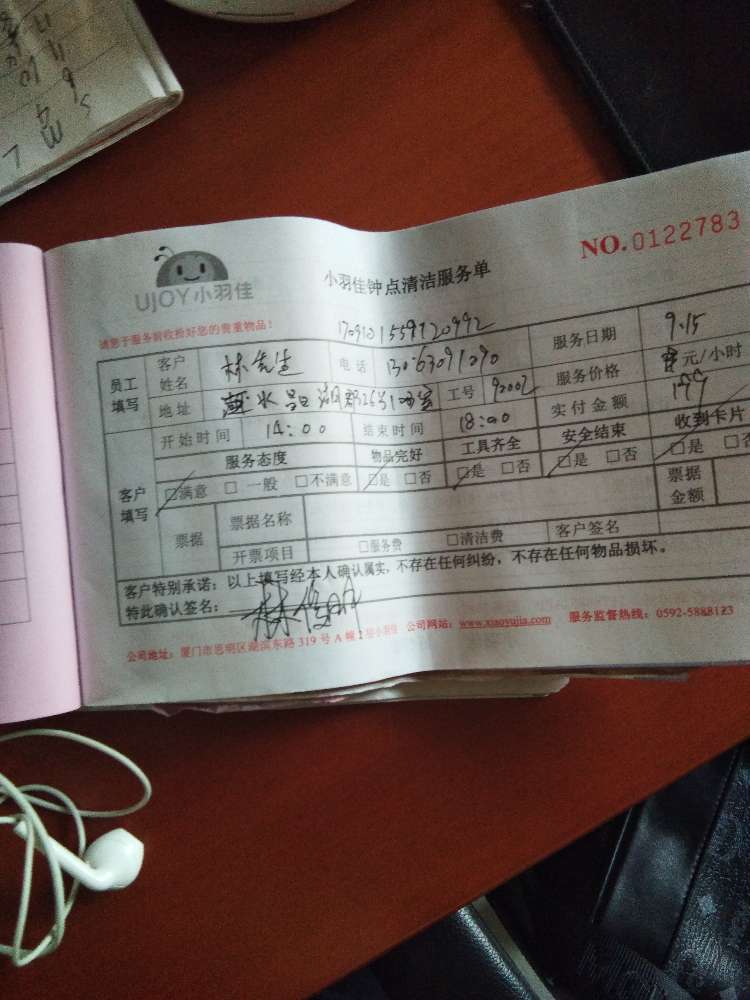 NO.0122783
UJOY小羽佳
小羽佳钟点清洁服务单
请您于服务前收拾好您的贵重物品！
1709101559120992
员工填写 客户姓名 林先生 电话 13063091090 服务日期 9.15
地址 水晶湖郡26号 工号 92002 服务价格 元/小时
开始时间 14:00 结束时间 18:00 实付金额 179
客户填写 服务态度 物品完好 工具齐全 安全结束 收到卡片
□满意 □一般 □不满意 □是 □否 □是 □否 □是 □否 □是 □否
票据 票据名称 票据金额
开票项目 □服务费 □清洁费 客户签名
客户特别承诺：以上填写经本人确认属实，不存在任何纠纷，不存在任何物品损坏。
特此确认签名：
公司地址：厦门市思明区湖滨东路319号A幢 公司网站：www.xiaoyujia.com 服务监督热线：0592-5888123